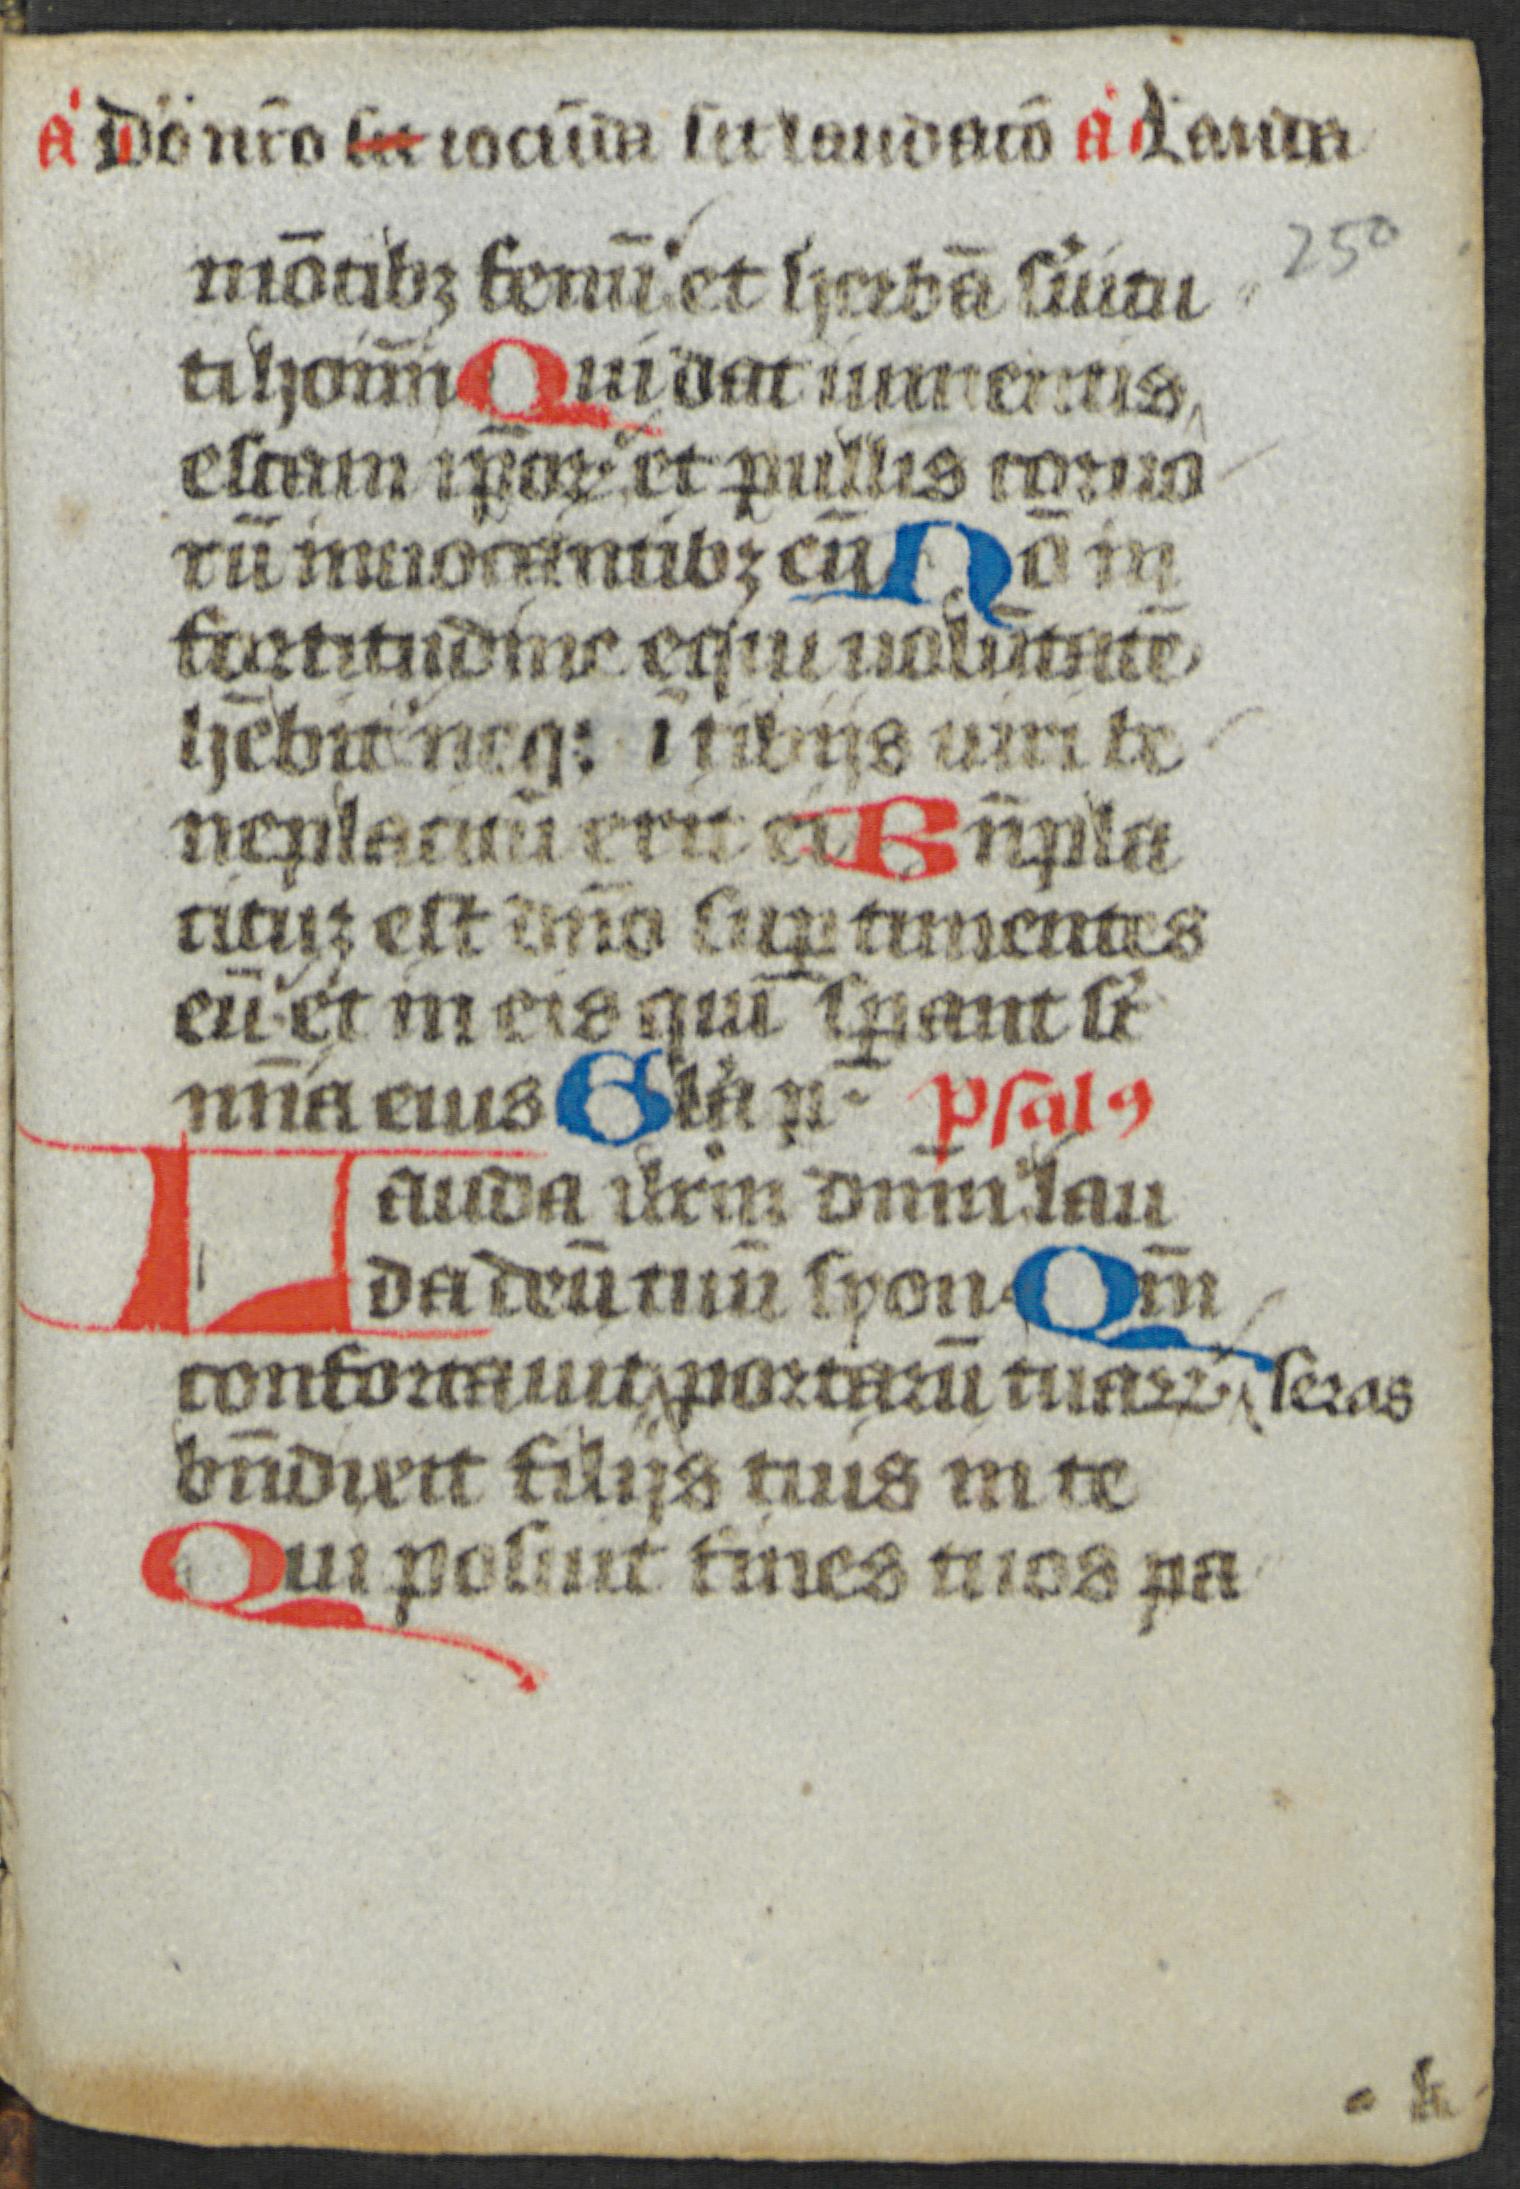 A Do nr̄o sit iocūda sit laudatō A Lauda
250
mōtibz fenū et herbā s͛uitu
ti hoīm Qui dat iumentis
escam ip̄oꝝ et pullis coruo
rū inuocantibz eū Nō in
fortitudine equi uolūtatē
hēbit neq; ī tibijs uiri be
neplacitū erit ei Bn̄pla
cituz est dn̄o suꝑ timentes
eū et in eis qui sꝑant sr̄
mīa eius Gl̄a p Psalꝰ
Lauda ihrlm dnm̄ lau
da deū tuū syon Qm̄
confortauit portarū tuaꝝ seras
bn̄dixit filijs tuis in te
Qui posuit fines tuos pa